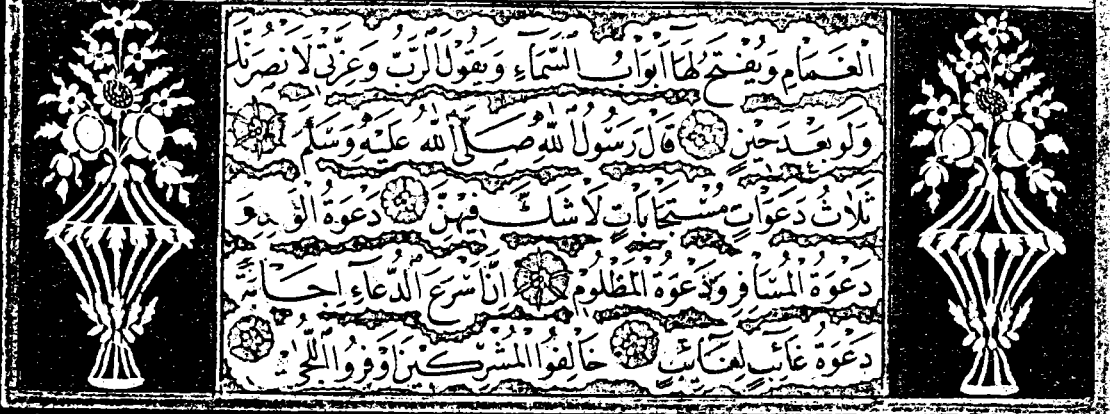 الْغَمَامِ وَيُفْتَحُ لَهَا اَبْوَابُ السَّمَاۤءِ وَيَقُولُ الرَّبُّ وَعِزَّتِي لَاَنْصُرَنَّكِ
وَلَوْ بَعْدَ حِيْنٍ قَالَ رَسُولُ اللهِ صَلَّى اللهُ عَلَيْهِ وَسَلَّمَ
ثَلَاثُ دَعَوَاتٍ مُسْتَجَابَاتٍ لَا شَكَّ فِيْهِنَّ دَعْوَةُ الْوَالِدِ وَ
دَعْوَةُ الْمُسَافِرِ وَدَعْوَةُ الْمَظْلُومِ اِنَّ اَسْرَعَ الدُّعَاۤءِ اِجَابَةً
دَعْوَةُ غَائِبٍ لِغَائِبٍ خَالِفُوا الْمُشْرِكِيْنَ اَوْفِرُوا اللُّحٰى